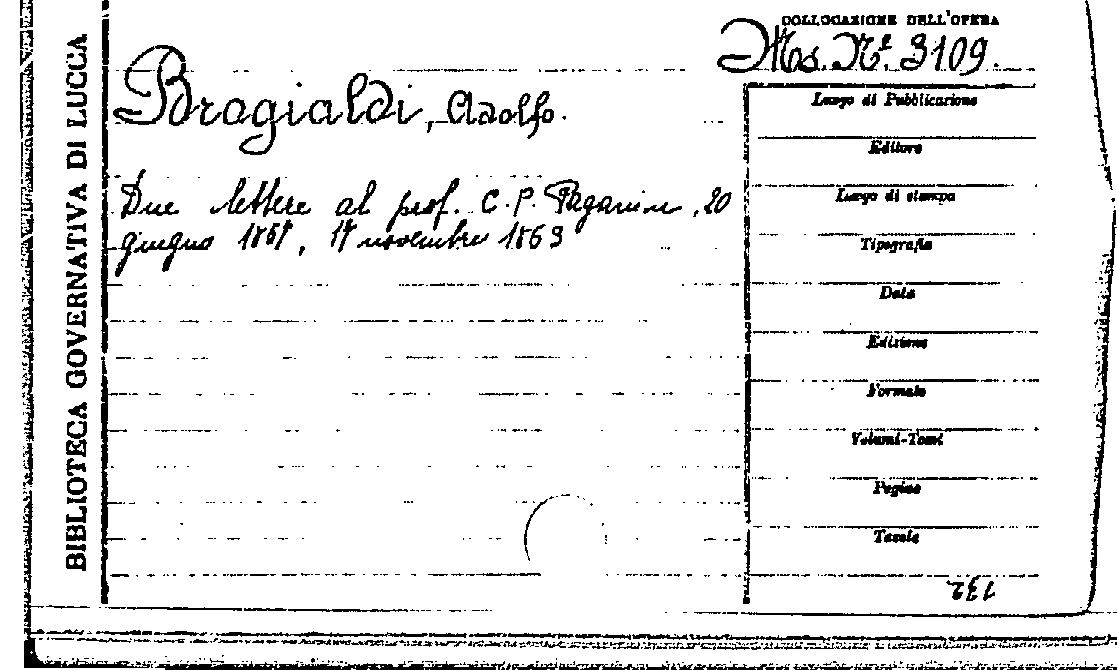 BIBLIOTECA GOVERNATIVA DI LUCCA
COLLOCAZIONE DELL'OPERA
Ms. N.º 3109.
Bragialdi, Adolfo.
Due lettere al prof. C. P. Paganini, 20
giugno, novembre 1869
Luogo di Pubblicazione
Editore
Luogo di stampa
Tipografia
Data
Edizione
Formato
Volumi-Tomi
Pagine
Tavole
132